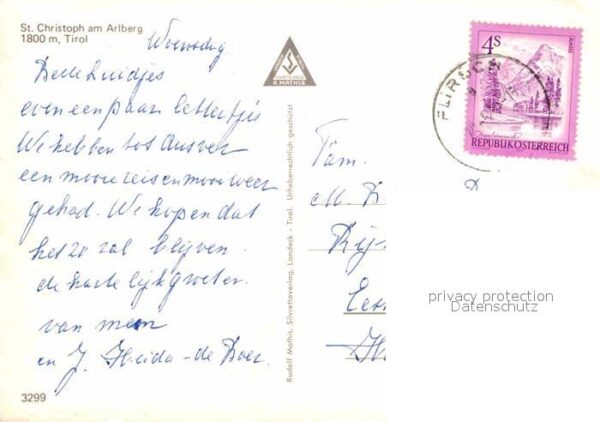 St. Christoph am Arlberg
1800 m, Tirol
Woensdag
Beste Luidjes
even een paar lettertjes
We hebben tot dusver
een mooie reis en mooi weer
gehad. We hopen dat
het zo zal blijven.
de hartelijke groeten
van mem
en J. Heida-de Boer.
3299
Rudolf Mathis, Silvrettaverlag, Landeck - Tirol. Urheberrechtlich geschützt
R MATHIS
4S
REPUBLIK ÖSTERREICH
FLIRSCH
Fam.
privacy protection
Datenschutz